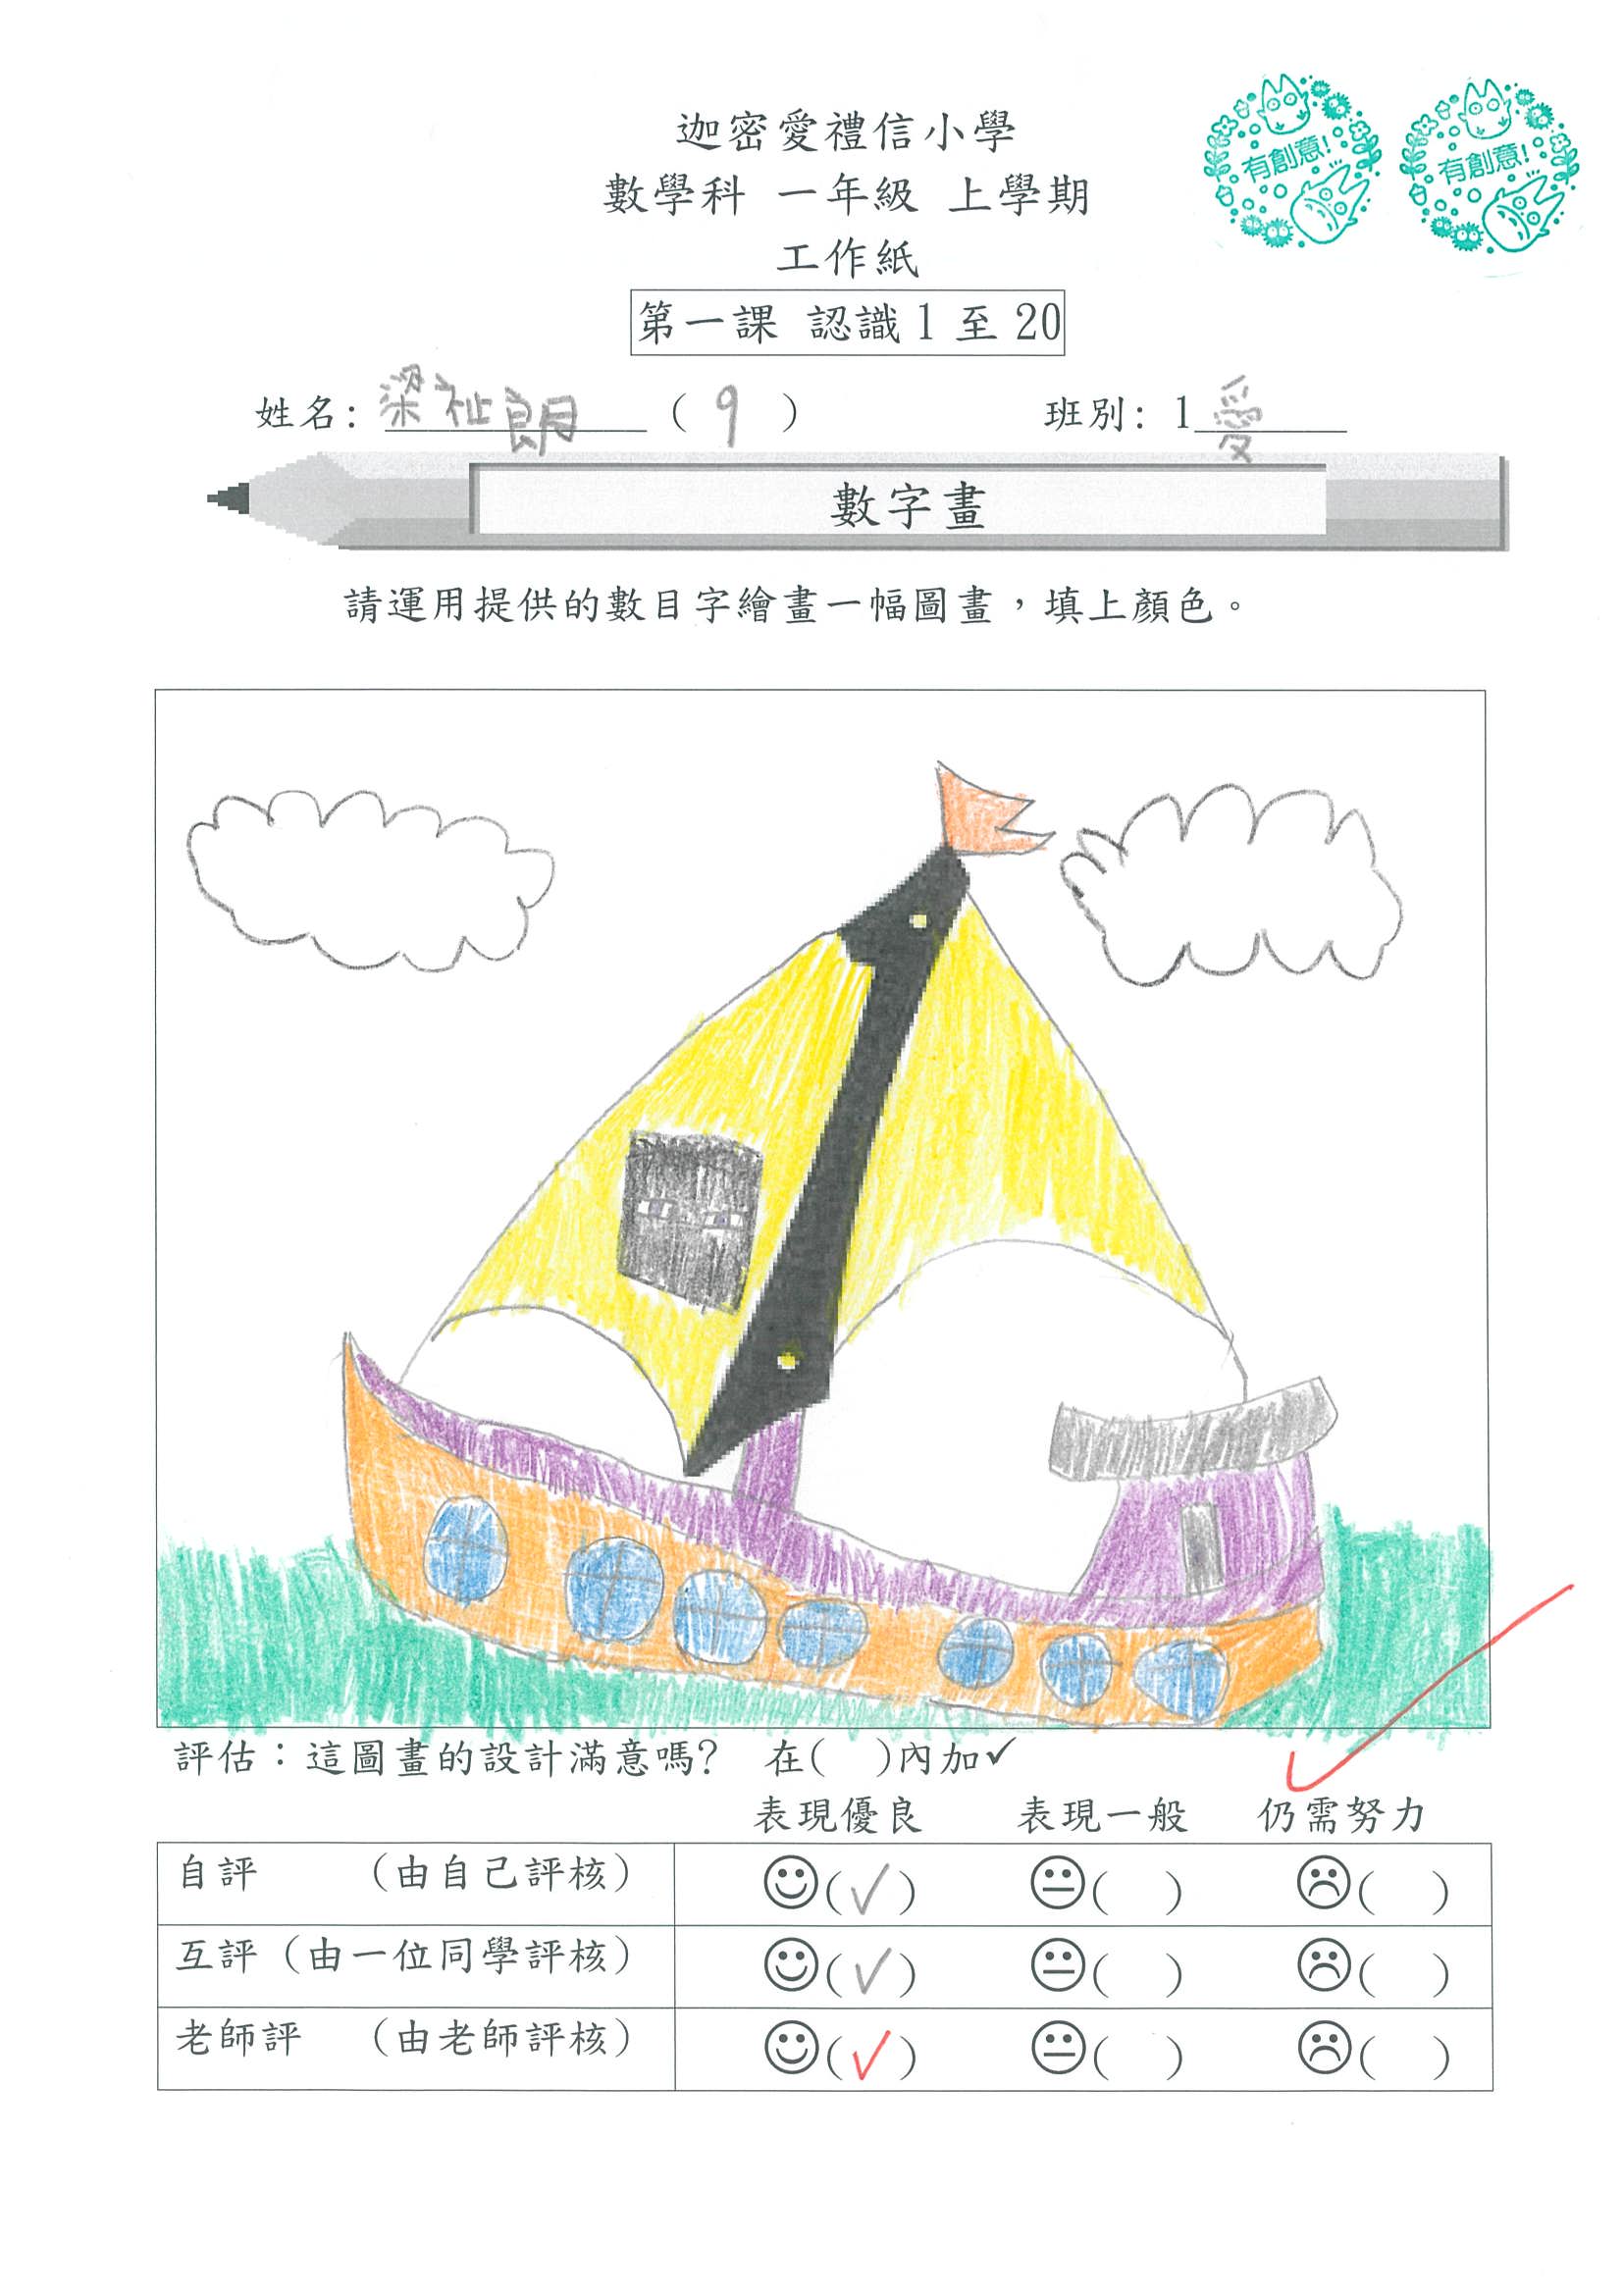 迦密愛禮信小學
有創意!
有創意!
數學科 一年級 上學期
工作紙
第一課 認識1至20
姓名: 梁祉朗 ( 9 ) 班別: 1愛
數字畫
請運用提供的數目字繪畫一幅圖畫，填上顏色。
1
評估：這圖畫的設計滿意嗎? 在( )內加✓
表現優良 表現一般 仍需努力
自評 （由自己評核） ☺(✓) 😐( ) ☹( )
互評（由一位同學評核） ☺(✓) 😐( ) ☹( )
老師評 （由老師評核） ☺(✓) 😐( ) ☹( )